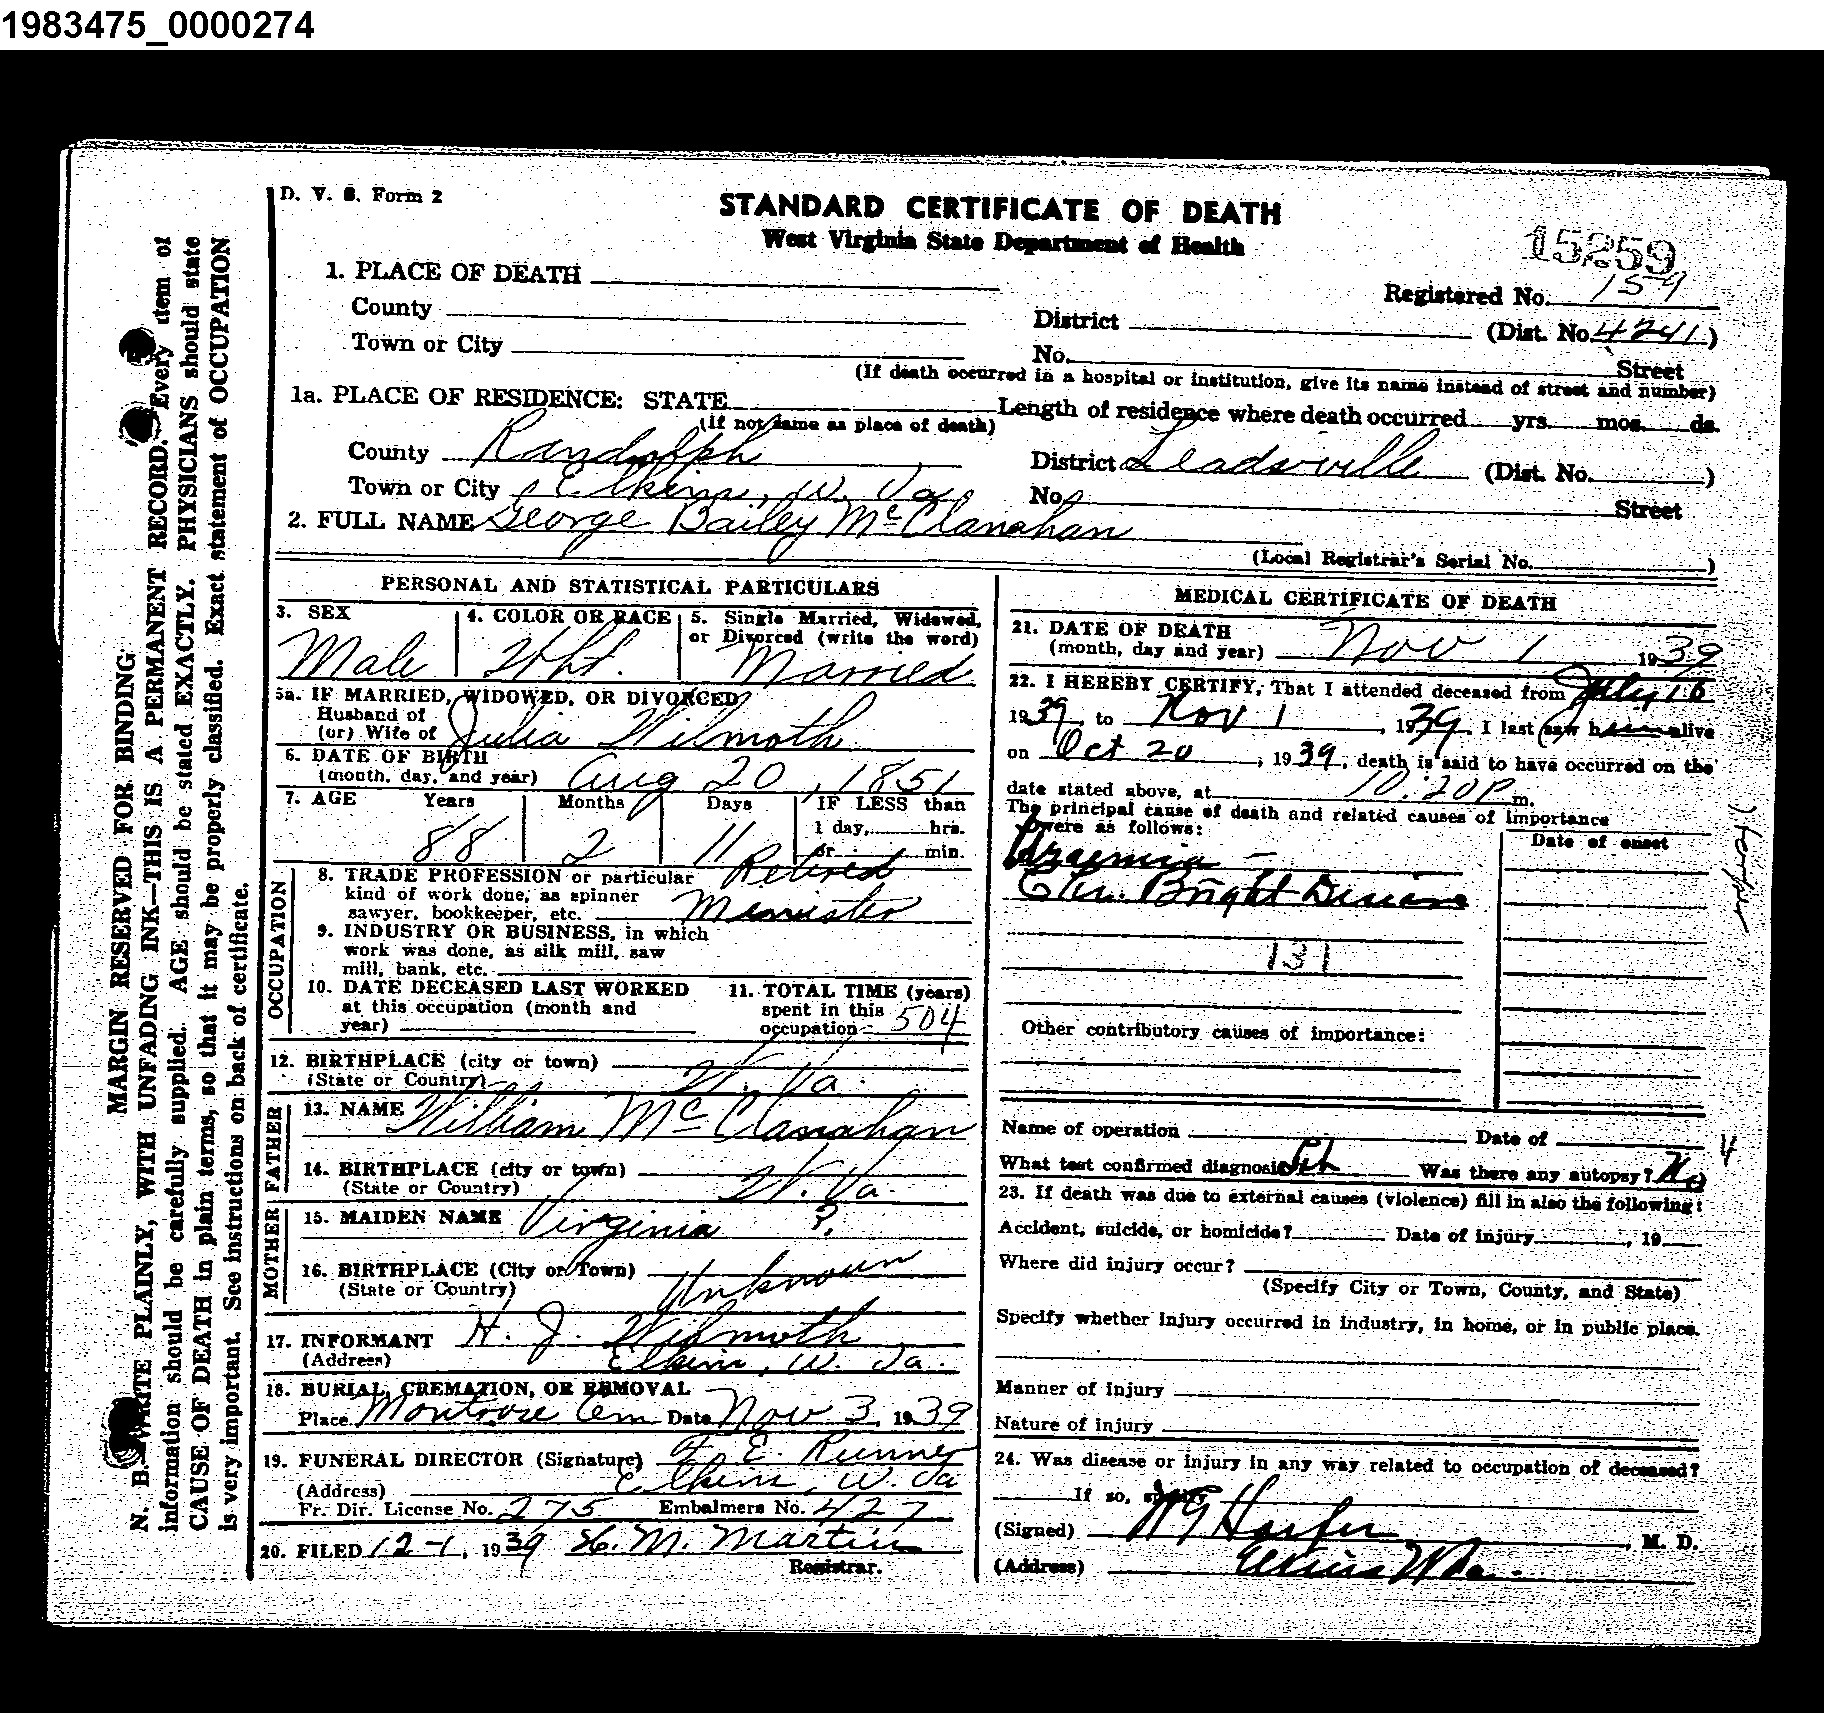 1983475_0000274
D. V. S. Form 2
STANDARD CERTIFICATE OF DEATH
West Virginia State Department of Health
15259
1. PLACE OF DEATH
Registered No. 159
County
District (Dist. No. 4241)
Town or City
No. Street
(If death occurred in a hospital or institution, give its name instead of street and number)
1a. PLACE OF RESIDENCE: STATE Length of residence where death occurred yrs. mos. ds.
(If not same as place of death)
County Randolph District Leadsville (Dist. No. )
Town or City Elkins, W. Va. No. Street
2. FULL NAME George Bailey McClanahan
(Local Registrar's Serial No. )
PERSONAL AND STATISTICAL PARTICULARS
3. SEX Male
4. COLOR OR RACE Wht.
5. Single Married, Widowed,
or Divorced (write the word)
Married
5a. IF MARRIED, WIDOWED, OR DIVORCED
Husband of
(or) Wife of Julia Wilmoth
6. DATE OF BIRTH
(month, day, and year) Aug 20, 1851
7. AGE Years Months Days IF LESS than
1 day, hrs.
88 2 11 or min.
OCCUPATION
8. TRADE PROFESSION or particular Retired
kind of work done, as spinner
sawyer, bookkeeper, etc. Menister
9. INDUSTRY OR BUSINESS, in which
work was done, as silk mill, saw
mill, bank, etc.
10. DATE DECEASED LAST WORKED
at this occupation (month and
year)
11. TOTAL TIME (years)
spent in this
occupation 504
12. BIRTHPLACE (city or town)
(State or Country) W. Va.
FATHER
13. NAME William McClanahan
14. BIRTHPLACE (city or town)
(State or Country) W. Va.
MOTHER
15. MAIDEN NAME Virginia ?.
16. BIRTHPLACE (City or Town)
(State or Country) Unknown
17. INFORMANT H. J. Wilmoth
(Address) Elkins, W. Va.
18. BURIAL, CREMATION, OR REMOVAL
Place Montrose Cem Date Nov 3, 1939
19. FUNERAL DIRECTOR (Signature) F. E. Runner
(Address) Elkins, W. Va
Fr. Dir. License No. 275 Embalmers No. 427
20. FILED 12-1, 1939 H. M. Martin
Registrar.
MEDICAL CERTIFICATE OF DEATH
21. DATE OF DEATH
(month, day and year) Nov 1 1939
22. I HEREBY CERTIFY, That I attended deceased from July 16
1939, to Nov 1, 1939. I last saw him alive
on Oct 20, 1939, death is said to have occurred on the
date stated above, at 10:20 P m.
The principal cause of death and related causes of importance
were as follows:
Date of onset
Uraemia -
Chr. Bright Disease
131
Other contributory causes of importance:
Name of operation Date of
4
What test confirmed diagnosis Was there any autopsy? No
23. If death was due to external causes (violence) fill in also the following:
Accident, suicide, or homicide? Date of injury , 19
Where did injury occur?
(Specify City or Town, County, and State)
Specify whether injury occurred in industry, in home, or in public place.
Manner of injury
Nature of injury
24. Was disease or injury in any way related to occupation of deceased?
If so, specify
(Signed) W G Harper, M. D.
(Address) Elkins W Va.
MARGIN RESERVED FOR BINDING
N. B.—WRITE PLAINLY, WITH UNFADING INK—THIS IS A PERMANENT RECORD. Every item of
information should be carefully supplied. AGE should be stated EXACTLY. PHYSICIANS should state
CAUSE OF DEATH in plain terms, so that it may be properly classified. Exact statement of OCCUPATION
is very important. See instructions on back of certificate.